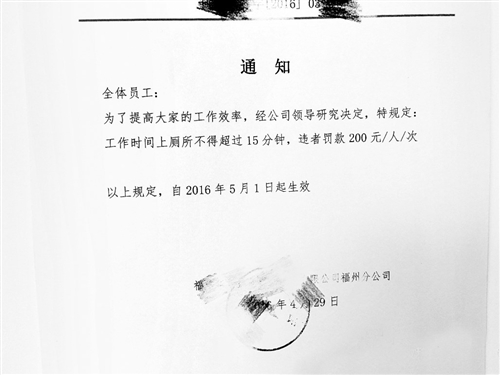 2016〕03
通 知
全体员工：
为了提高大家的工作效率，经公司领导研究决定，特规定：
工作时间上厕所不得超过15分钟，违者罚款200元/人/次
以上规定，自2016年5月1日起生效
福 限公司福州分公司
年4月29日